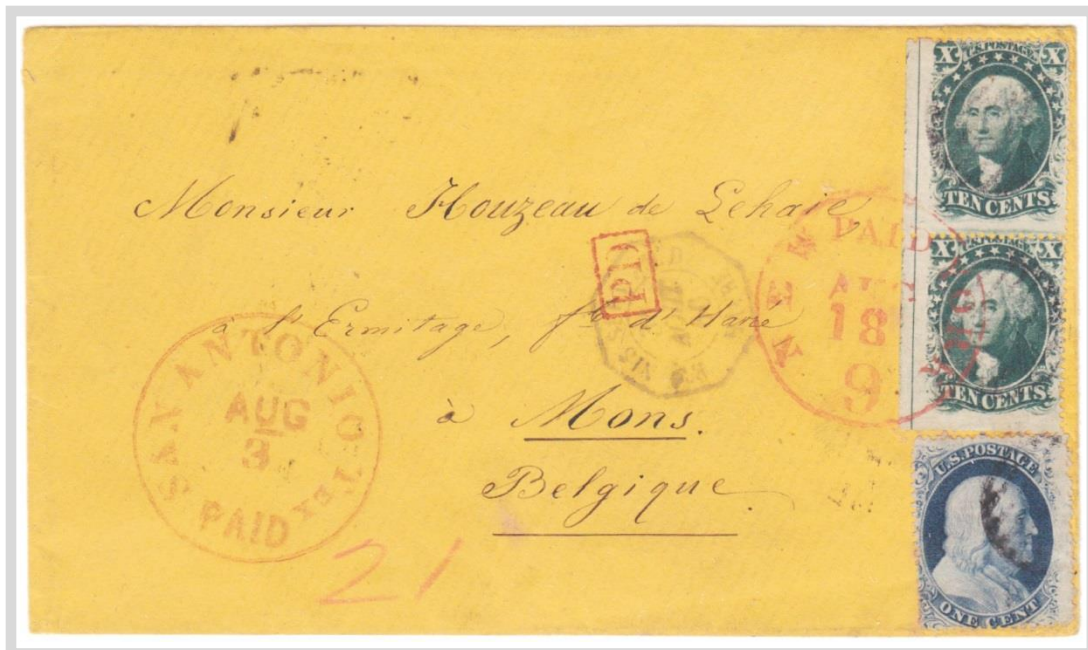 X U.S. POSTAGE X
TEN CENTS.
Monsieur Houzeau de Lehaie,
PD
NEW YORK
PAID
AUG
18
9
X U.S. POSTAGE X
TEN CENTS.
à l'Ermitage, fg d'Havré
SAN ANTONIO-TEX
AUG
3
PAID
à Mons.
Belgique
U.S. POSTAGE
ONE CENT
21